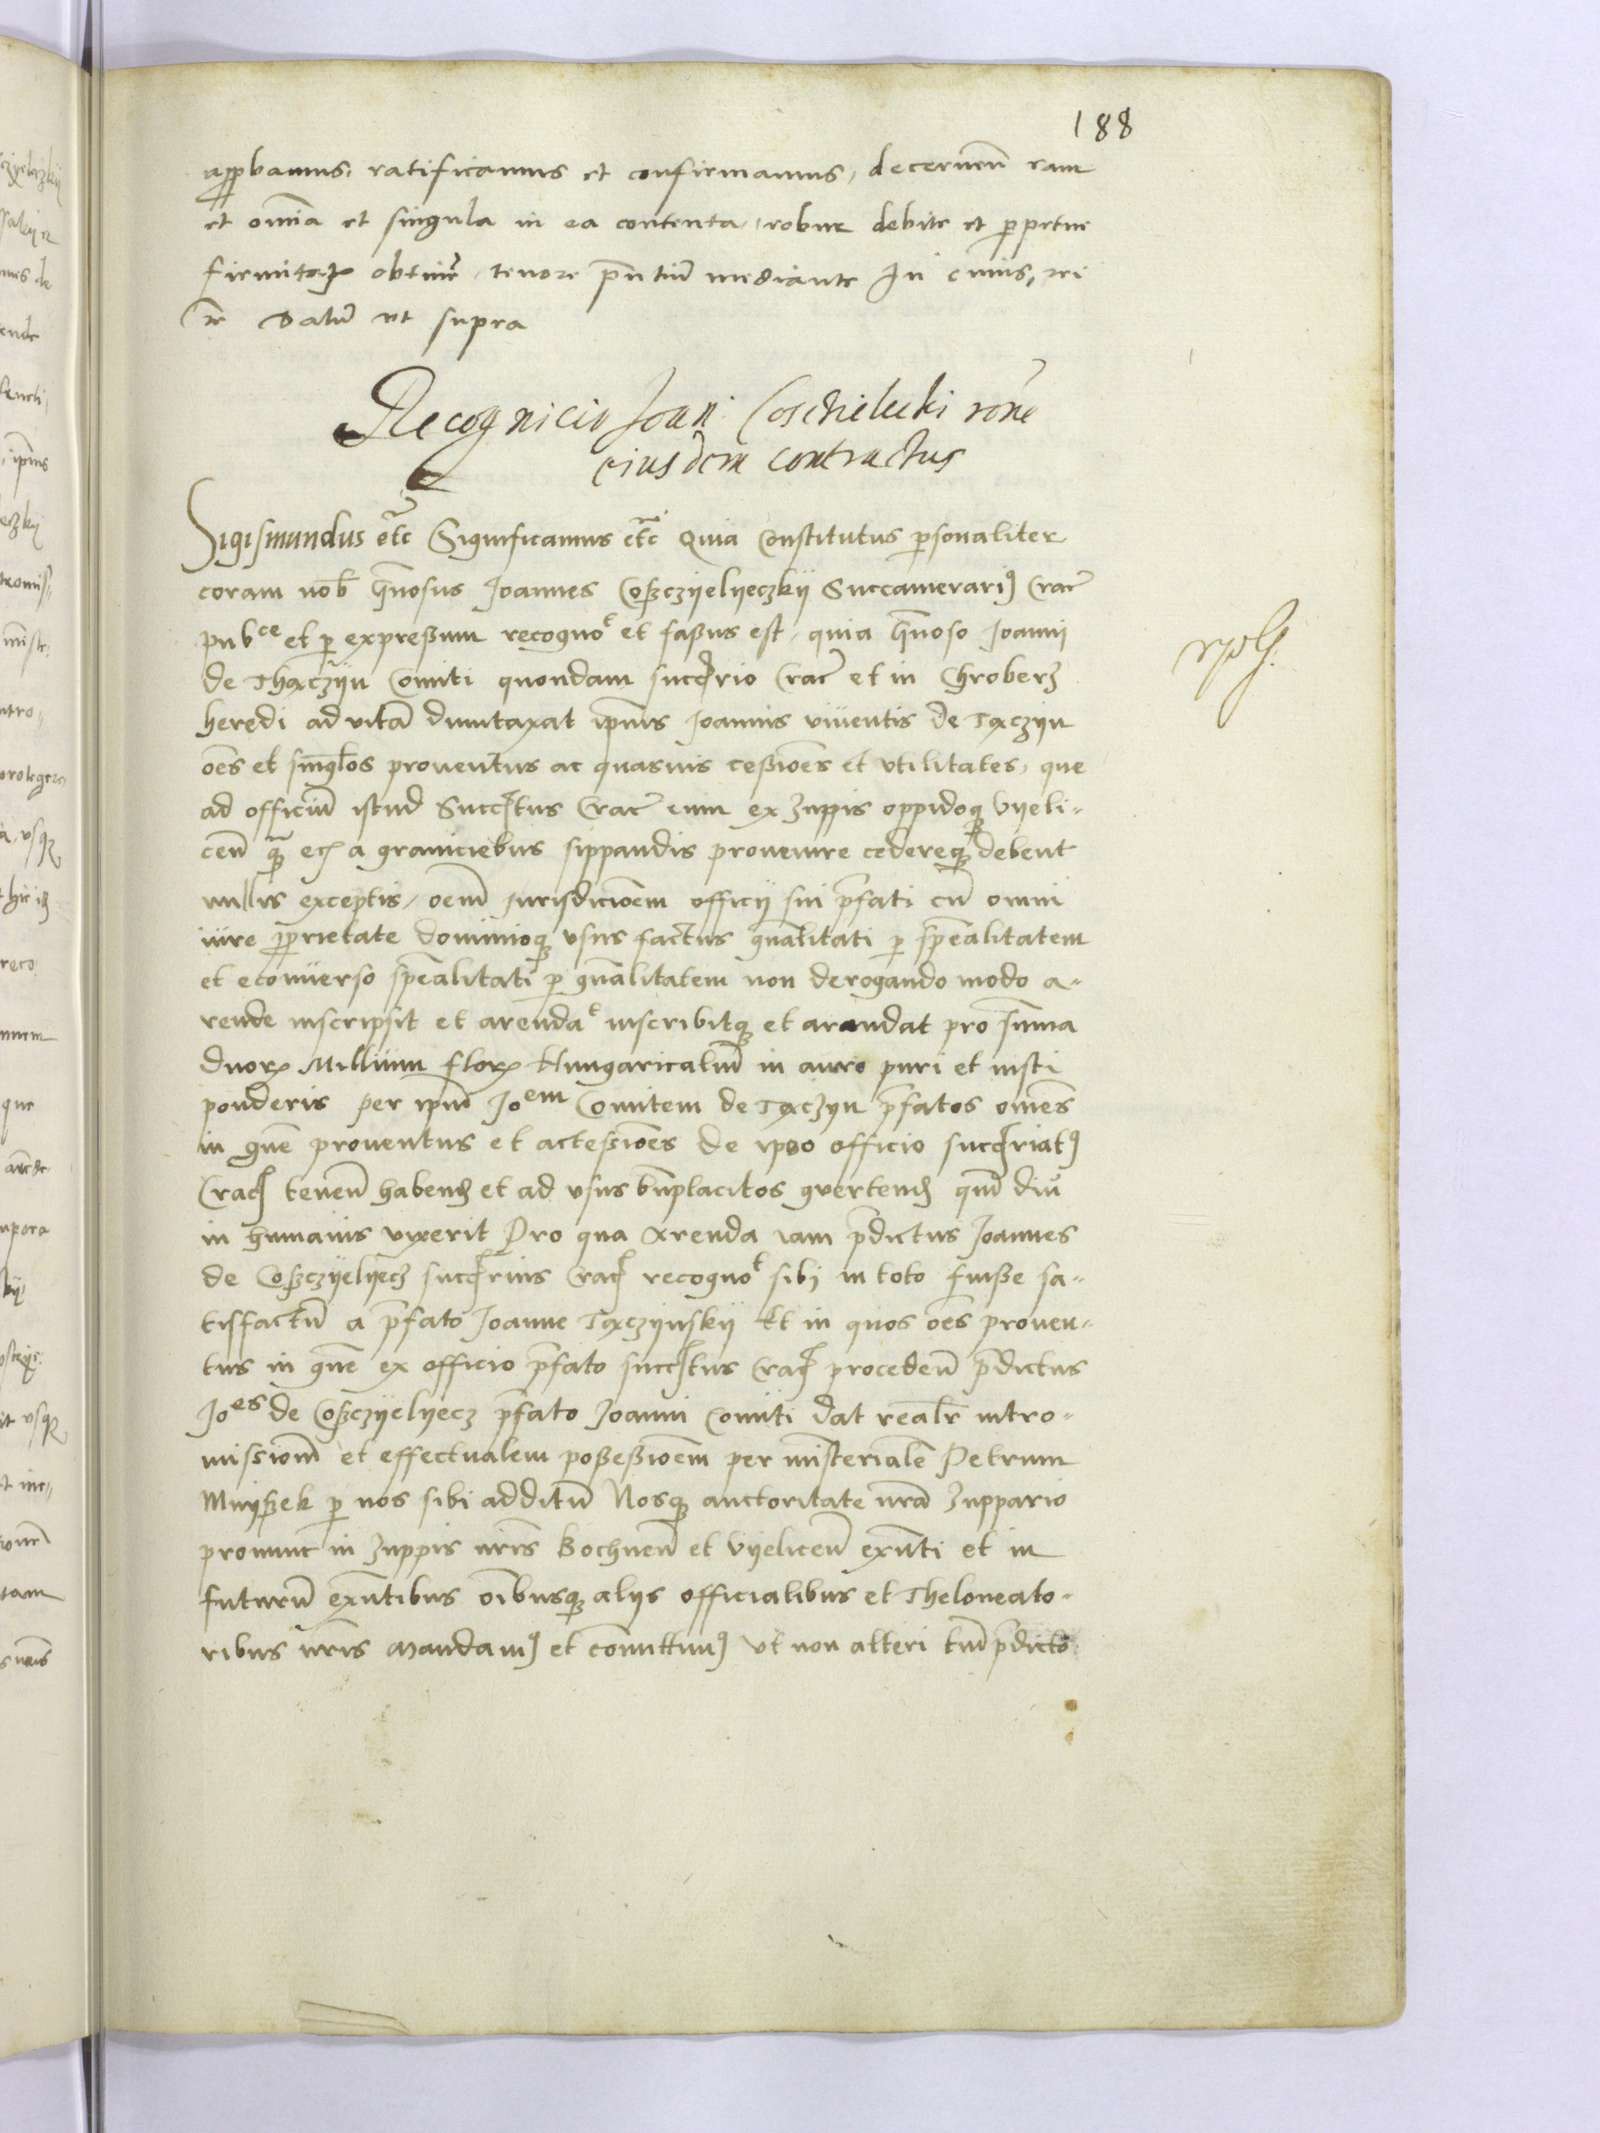 188
approbamus, ratificamus et confirmamus, decernen̄ eam
et om̄ia et singula in ea contenta, robur debite et perpetue
firmitatis obtinere, tenore pn̄tiū mediante In cuius rei
Datū ut supra
Recognicio Joan: Coschielecki rōne
eiusdem contractus
Sigismundus etc̄ Significamus etc̄ Quia Constitutus personaliter
coram nob̄ gn̄osus Joannes Coszczyelyeczkij Succamerari9 Crac̄
pubce et per expreßum recognot et faßus est, quia gn̄oso Joanni
de Thączijn Comiti quondam succ̄rio Crac̄ et in Chroberz
heredi ad vitā dumtaxat ip̄ius Joannis viventis de Tączijn
oēs et singlos̄ proventus ac quasvis ceßioēs et utilitates, que
ad officiū istud Succ̄tus Crac̄ eum ex zuppis oppidoq3 Vijeli-
cen̄ q̄3 ec̄ a graniciebus sippandis provenire cedereq3 debent
nullis exceptis, oem̄ jurisdicioēm officij sui p̄fati cū omni
iure proprietate dominioq3 usus factus gn̄alitati per spēalitatem
et econverso spēalitati per gn̄alitatem non derogando modo a-
rende inscripsit et arendat inscribitq3 et arendat pro sum̄a
duorum Millium florum Hungaricaliū in auro puri et iusti
ponderis per ipm̄ Joem Comitem de Tączyn p̄fatos omnēs
in gn̄e proventus et acteßioēs de ipso officio succ̄riat9
Crac̄ tenen̄ habend et ad usus bn̄placitos 9vertend qm̄ diu
in humanis vixerit Pro qua Arenda iam p̄dictus Joannes
de Coszczijelyecz succ̄rius Crac̄ recognot sibi in toto fuiße sa-
tisfactū a p̄fato Joanne Tączijnskij Et in quos oēs proven-
tus in gn̄e ex officio p̄fato succ̄tus Crac̄ proceden̄ p̄dictus
Joes de Coszczijelyecz p̄fato Joanni Comiti dat realr̄ intro-
missionē et effectualem poßeßioēm per mīsterialē Petrum
Mnijszek per nos sibi additū Nosq3 auctoritate nrā Zuppario
pronunc in Zuppis nrīs Bochnen̄ et Vijelicen̄ exn̄ti et in
futurū exn̄tibus oībusq3 alijs officialibus et Theloneato-
ribus nrīs mandam9 et com̄ittim9 ut non alteri tm̄ p̄dicto